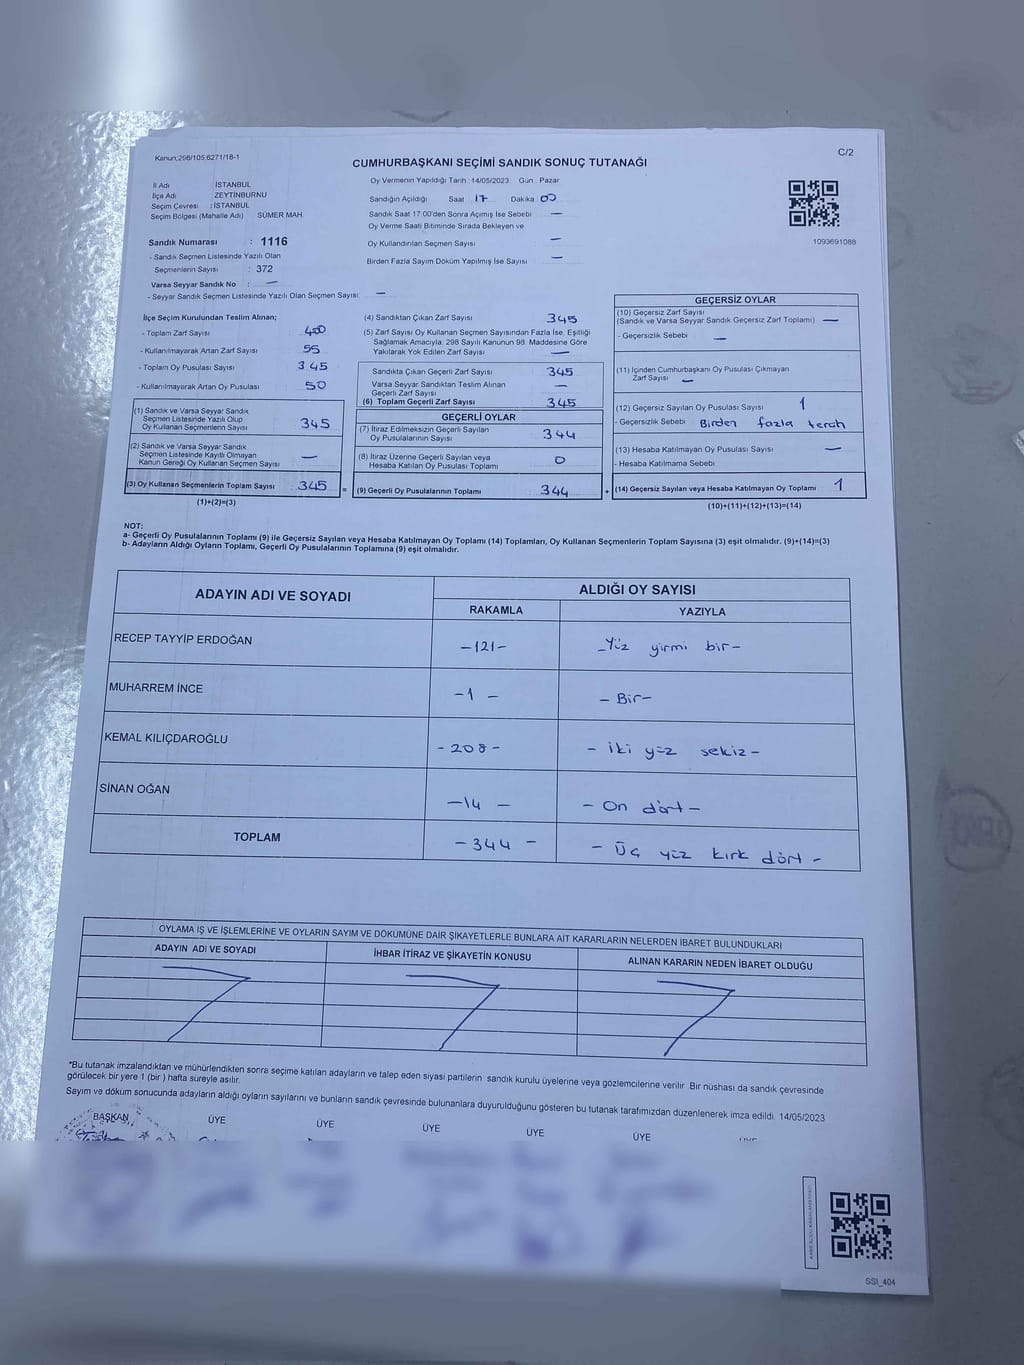 Kanun:298/105;6271/18-1
C/2
CUMHURBAŞKANI SEÇİMİ SANDIK SONUÇ TUTANAĞI
İl Adı : İSTANBUL
İlçe Adı : ZEYTİNBURNU
Seçim Çevresi : İSTANBUL
Seçim Bölgesi (Mahalle Adı) SÜMER MAH.
Oy Vermenin Yapıldığı Tarih :14/05/2023 Gün : Pazar
Sandığın Açıldığı Saat 17 Dakika 00
Sandık Saat 17:00'den Sonra Açılmış İse Sebebi —
Oy Verme Saati Bitiminde Sırada Bekleyen ve
Oy Kullandırılan Seçmen Sayısı —
Birden Fazla Sayım Döküm Yapılmış İse Sayısı —
1093691088
Sandık Numarası : 1116
- Sandık Seçmen Listesinde Yazılı Olan
Seçmenlerin Sayısı : 372
Varsa Seyyar Sandık No : —
- Seyyar Sandık Seçmen Listesinde Yazılı Olan Seçmen Sayısı: —
İlçe Seçim Kurulundan Teslim Alınan;
- Toplam Zarf Sayısı 400
- Kullanılmayarak Artan Zarf Sayısı 55
- Toplam Oy Pusulası Sayısı 345
- Kullanılmayarak Artan Oy Pusulası 50
(1) Sandık ve Varsa Seyyar Sandık
Seçmen Listesinde Yazılı Olup
Oy Kullanan Seçmenlerin Sayısı 345
(2) Sandık ve Varsa Seyyar Sandık
Seçmen Listesinde Kayıtlı Olmayan
Kanun Gereği Oy Kullanan Seçmen Sayısı —
(3) Oy Kullanan Seçmenlerin Toplam Sayısı 345
(1)+(2)=(3)
(4) Sandıktan Çıkan Zarf Sayısı 345
(5) Zarf Sayısı Oy Kullanan Seçmen Sayısından Fazla İse, Eşitliği
Sağlamak Amacıyla; 298 Sayılı Kanunun 98. Maddesine Göre
Yakılarak Yok Edilen Zarf Sayısı —
Sandıkta Çıkan Geçerli Zarf Sayısı 345
Varsa Seyyar Sandıktan Teslim Alınan
Geçerli Zarf Sayısı —
(6) Toplam Geçerli Zarf Sayısı 345
GEÇERLİ OYLAR
(7) İtiraz Edilmeksizin Geçerli Sayılan
Oy Pusulalarının Sayısı 344
(8) İtiraz Üzerine Geçerli Sayılan veya
Hesaba Katılan Oy Pusulası Toplamı 0
= (9) Geçerli Oy Pusulalarının Toplamı 344
GEÇERSİZ OYLAR
(10) Geçersiz Zarf Sayısı
(Sandık ve Varsa Seyyar Sandık Geçersiz Zarf Toplamı) —
- Geçersizlik Sebebi —
(11) İçinden Cumhurbaşkanı Oy Pusulası Çıkmayan
Zarf Sayısı —
(12) Geçersiz Sayılan Oy Pusulası Sayısı 1
- Geçersizlik Sebebi Birden fazla tercih
(13) Hesaba Katılmayan Oy Pusulası Sayısı —
- Hesaba Katılmama Sebebi
+ (14) Geçersiz Sayılan veya Hesaba Katılmayan Oy Toplamı 1
(10)+(11)+(12)+(13)=(14)
NOT:
a- Geçerli Oy Pusulalarının Toplamı (9) ile Geçersiz Sayılan veya Hesaba Katılmayan Oy Toplamı (14) Toplamları, Oy Kullanan Seçmenlerin Toplam Sayısına (3) eşit olmalıdır. (9)+(14)=(3)
b- Adayların Aldığı Oyların Toplamı, Geçerli Oy Pusulalarının Toplamına (9) eşit olmalıdır.
ADAYIN ADI VE SOYADI
ALDIĞI OY SAYISI
RAKAMLA YAZIYLA
RECEP TAYYİP ERDOĞAN -121- -Yüz yirmi bir-
MUHARREM İNCE -1- -Bir-
KEMAL KILIÇDAROĞLU -208- -iki yüz sekiz-
SİNAN OĞAN -14- -On dört-
TOPLAM -344- -Üç yüz kırk dört-
OYLAMA İŞ VE İŞLEMLERİNE VE OYLARIN SAYIM VE DÖKÜMÜNE DAİR ŞİKAYETLERLE BUNLARA AİT KARARLARIN NELERDEN İBARET BULUNDUKLARI
ADAYIN ADI VE SOYADI İHBAR İTİRAZ VE ŞİKAYETİN KONUSU ALINAN KARARIN NEDEN İBARET OLDUĞU
*Bu tutanak imzalandıktan ve mühürlendikten sonra seçime katılan adayların ve talep eden siyasi partilerin sandık kurulu üyelerine veya gözlemcilerine verilir. Bir nüshası da sandık çevresinde
görülecek bir yere 1 (bir) hafta süreyle asılır.
Sayım ve döküm sonucunda adayların aldığı oyların sayılarını ve bunların sandık çevresinde bulunanlara duyurulduğunu gösteren bu tutanak tarafımızdan düzenlenerek imza edildi. 14/05/2023
BAŞKAN ÜYE ÜYE ÜYE ÜYE ÜYE
SSI_404